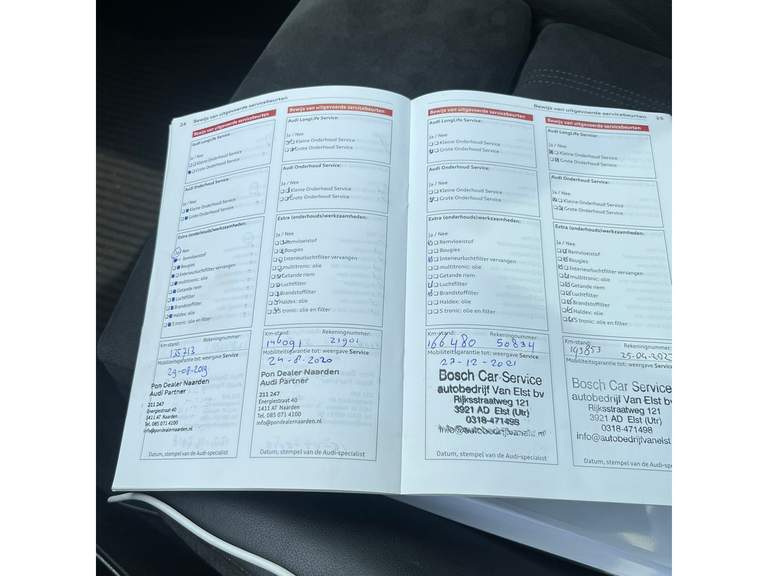 24 Bewijs van uitgevoerde servicebeurten
Bewijs van uitgevoerde servicebeurten
Audi LongLife Service:
Ja / Nee
Kleine Onderhoud Service
Grote Onderhoud Service
Audi Onderhoud Service:
Ja / Nee
Kleine Onderhoud Service
Grote Onderhoud Service
Extra (onderhouds)werkzaamheden:
Ja / Nee
Remvloeistof
Bougies
Interieurluchtfilter vervangen
multitronic: olie
Getande riem
Luchtfilter
Brandstoffilter
Haldex: olie
S tronic: olie en filter
Km-stand: Rekeningnummer:
135713
Mobiliteitsgarantie tot: weergave Service
29-08-2019
Pon Dealer Naarden
Audi Partner
211 247
Energiestraat 40
1411 AT Naarden
Tel. 085 071 4100
info@pondealernaarden.nl
Datum, stempel van de Audi-specialist
Bewijs van uitgevoerde servicebeurten
Audi LongLife Service:
Ja / Nee
Kleine Onderhoud Service
Grote Onderhoud Service
Audi Onderhoud Service:
Ja / Nee
Kleine Onderhoud Service
Grote Onderhoud Service
Extra (onderhouds)werkzaamheden:
Ja / Nee
Remvloeistof
Bougies
Interieurluchtfilter vervangen
multitronic: olie
Getande riem
Luchtfilter
Brandstoffilter
Haldex: olie
S tronic: olie en filter
Km-stand: Rekeningnummer:
146091 21901
Mobiliteitsgarantie tot: weergave Service
24-8-2020
Pon Dealer Naarden
Audi Partner
211 247
Energiestraat 40
1411 AT Naarden
Tel. 085 071 4100
info@pondealernaarden.nl
Datum, stempel van de Audi-specialist
Bewijs van uitgevoerde servicebeurten 25
Bewijs van uitgevoerde servicebeurten
Audi LongLife Service:
Ja / Nee
Kleine Onderhoud Service
Grote Onderhoud Service
Audi Onderhoud Service:
Ja / Nee
Kleine Onderhoud Service
Grote Onderhoud Service
Extra (onderhouds)werkzaamheden:
Ja / Nee
Remvloeistof
Bougies
Interieurluchtfilter vervangen
multitronic: olie
Getande riem
Luchtfilter
Brandstoffilter
Haldex: olie
S tronic: olie en filter
Km-stand: Rekeningnummer:
166480 50834
Mobiliteitsgarantie tot: weergave Service
27-12-2021
Bosch Car Service
autobedrijf Van Elst bv
Rijksstraatweg 121
3921 AD Elst (Utr)
0318-471498
info@autobedrijfvanelst.nl
Datum, stempel van de Audi-specialist
Bewijs van uitgevoerde servicebeurten
Audi LongLife Service:
Ja / Nee
Kleine Onderhoud Service
Grote Onderhoud Service
Audi Onderhoud Service:
Ja / Nee
Kleine Onderhoud Service
Grote Onderhoud Service
Extra (onderhouds)werkzaamheden:
Ja / Nee
Remvloeistof
Bougies
Interieurluchtfilter vervangen
multitronic: olie
Getande riem
Luchtfilter
Brandstoffilter
Haldex: olie
S tronic: olie en filter
Km-stand: Rekeningnummer
Mobiliteitsgarantie tot: weergave Service
Bosch Car Service
autobedrijf Van Elst bv
Rijksstraatweg 121
3921 AD Elst (Utr)
0318-471498
info@autobedrijfvanelst
Datum, stempel van de Audi-special